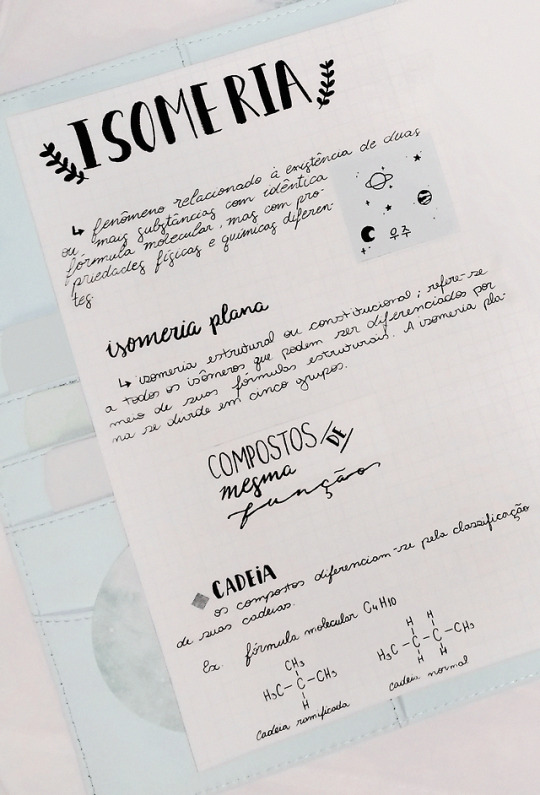 ISOMERIA
↳ fenômeno relacionado à existência de duas
ou mais substâncias com idêntica
fórmula molecular, mas com pro-
priedades físicas e químicas diferen-
tes.
우주
isomeria plana
↳ isomeria estrutural ou constitucional; refere-se
a todos os isômeros que podem ser diferenciados por
meio de suas fórmulas estruturais. A isomeria pla-
na se divide em cinco grupos.
COMPOSTOS DE
mesma
função
CADEIA
os compostos diferenciam-se pela classificação
de suas cadeias.
Ex: fórmula molecular C4H10
CH3
H3C-C-CH3
H
cadeia ramificada
H H
H3C-C-C-CH3
H H
cadeia normal